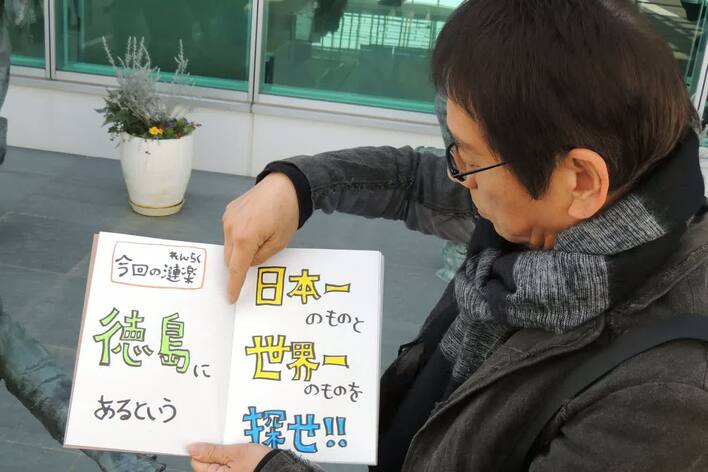 れんらく
今回の漣楽
徳島に
あるという
日本一
のものと
世界一
のものを
探せ!!